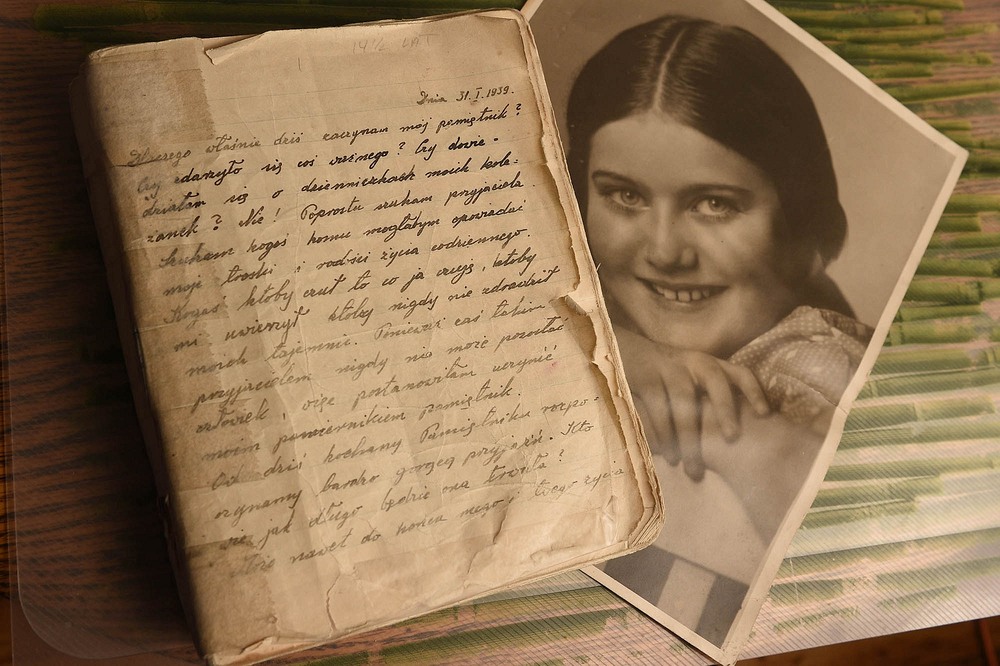 14½ LAT
Dnia 31.I.1939.
Dlaczego właśnie dziś zaczynam mój pamiętnik?
Czy zdarzyło się coś ważnego? Czy dowie-
działam się o dzienniczkach moich kole-
żanek? Nie! Poprostu szukam przyjaciela.
Szukam kogoś komu mogłabym opowiadać
moje troski i radości życia codziennego.
Kogoś ktoby czuł to co ja czuję, ktoby
mi uwierzył ktoby nigdy nie zdradził
moich tajemnic. Ponieważ coś takim
przyjacielem nigdy nie może pozostać
człowiek, więc postanowiłam uczynić
moim powiernikiem pamiętnik.
Od dziś kochany Pamiętniku rozpo-
czynamy bardzo gorącą przyjaźń. Kto
wie jak długo będzie ona trwała?
Może nawet do końca mego i twego życia